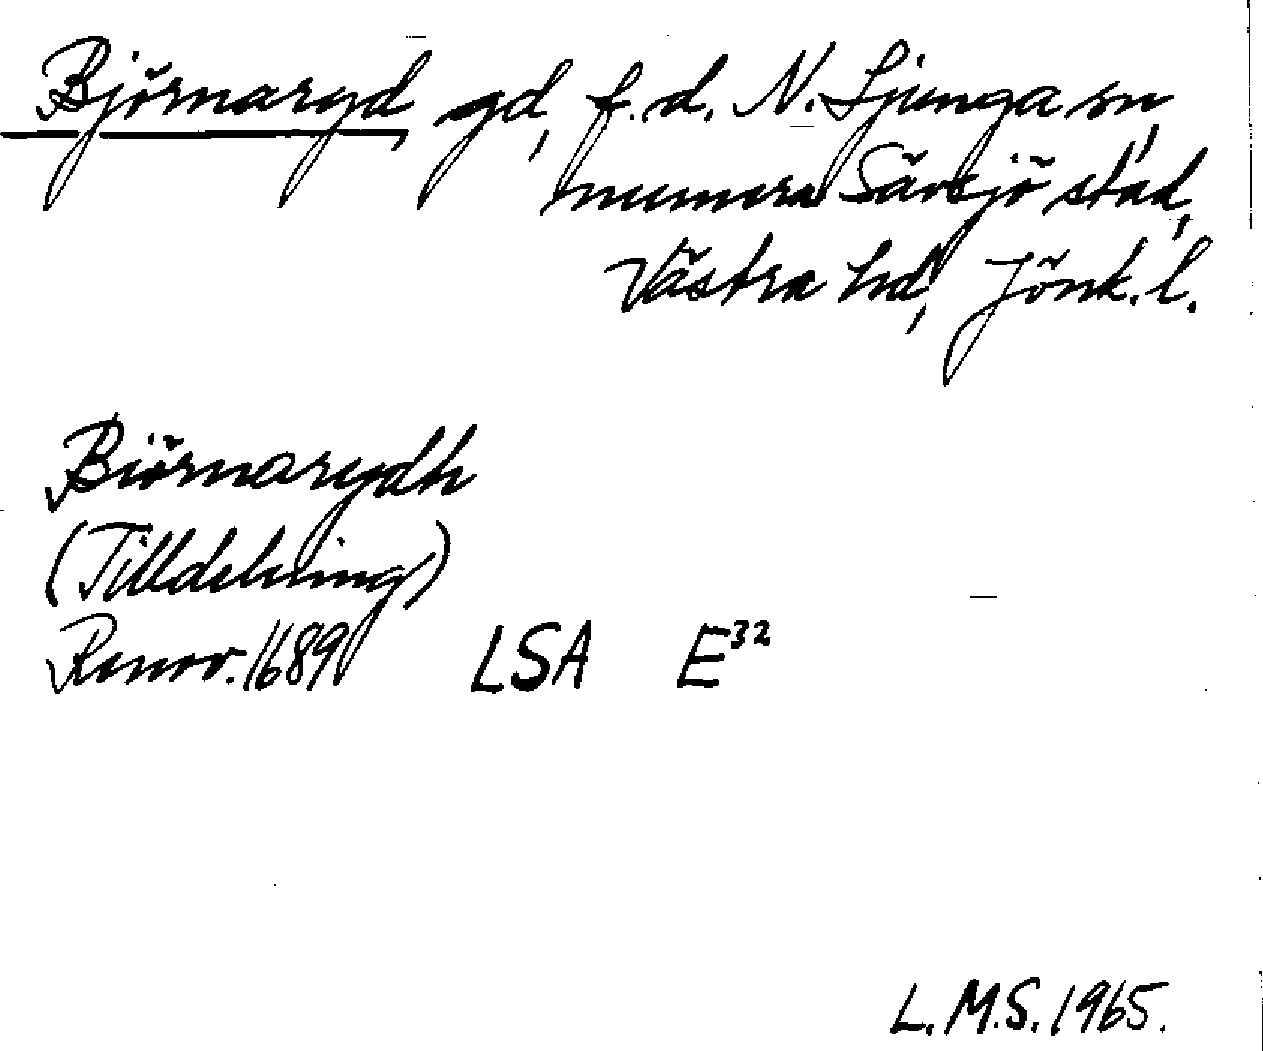 Björnaryd, gd, f.d. N. Ljunga sn,
numera Sävsjö stad,
Västra hd, Jönk. l.
Biörnarydh
(Tilldelning)
Renov. 1689 LSA E32
L.M.S. 1965.